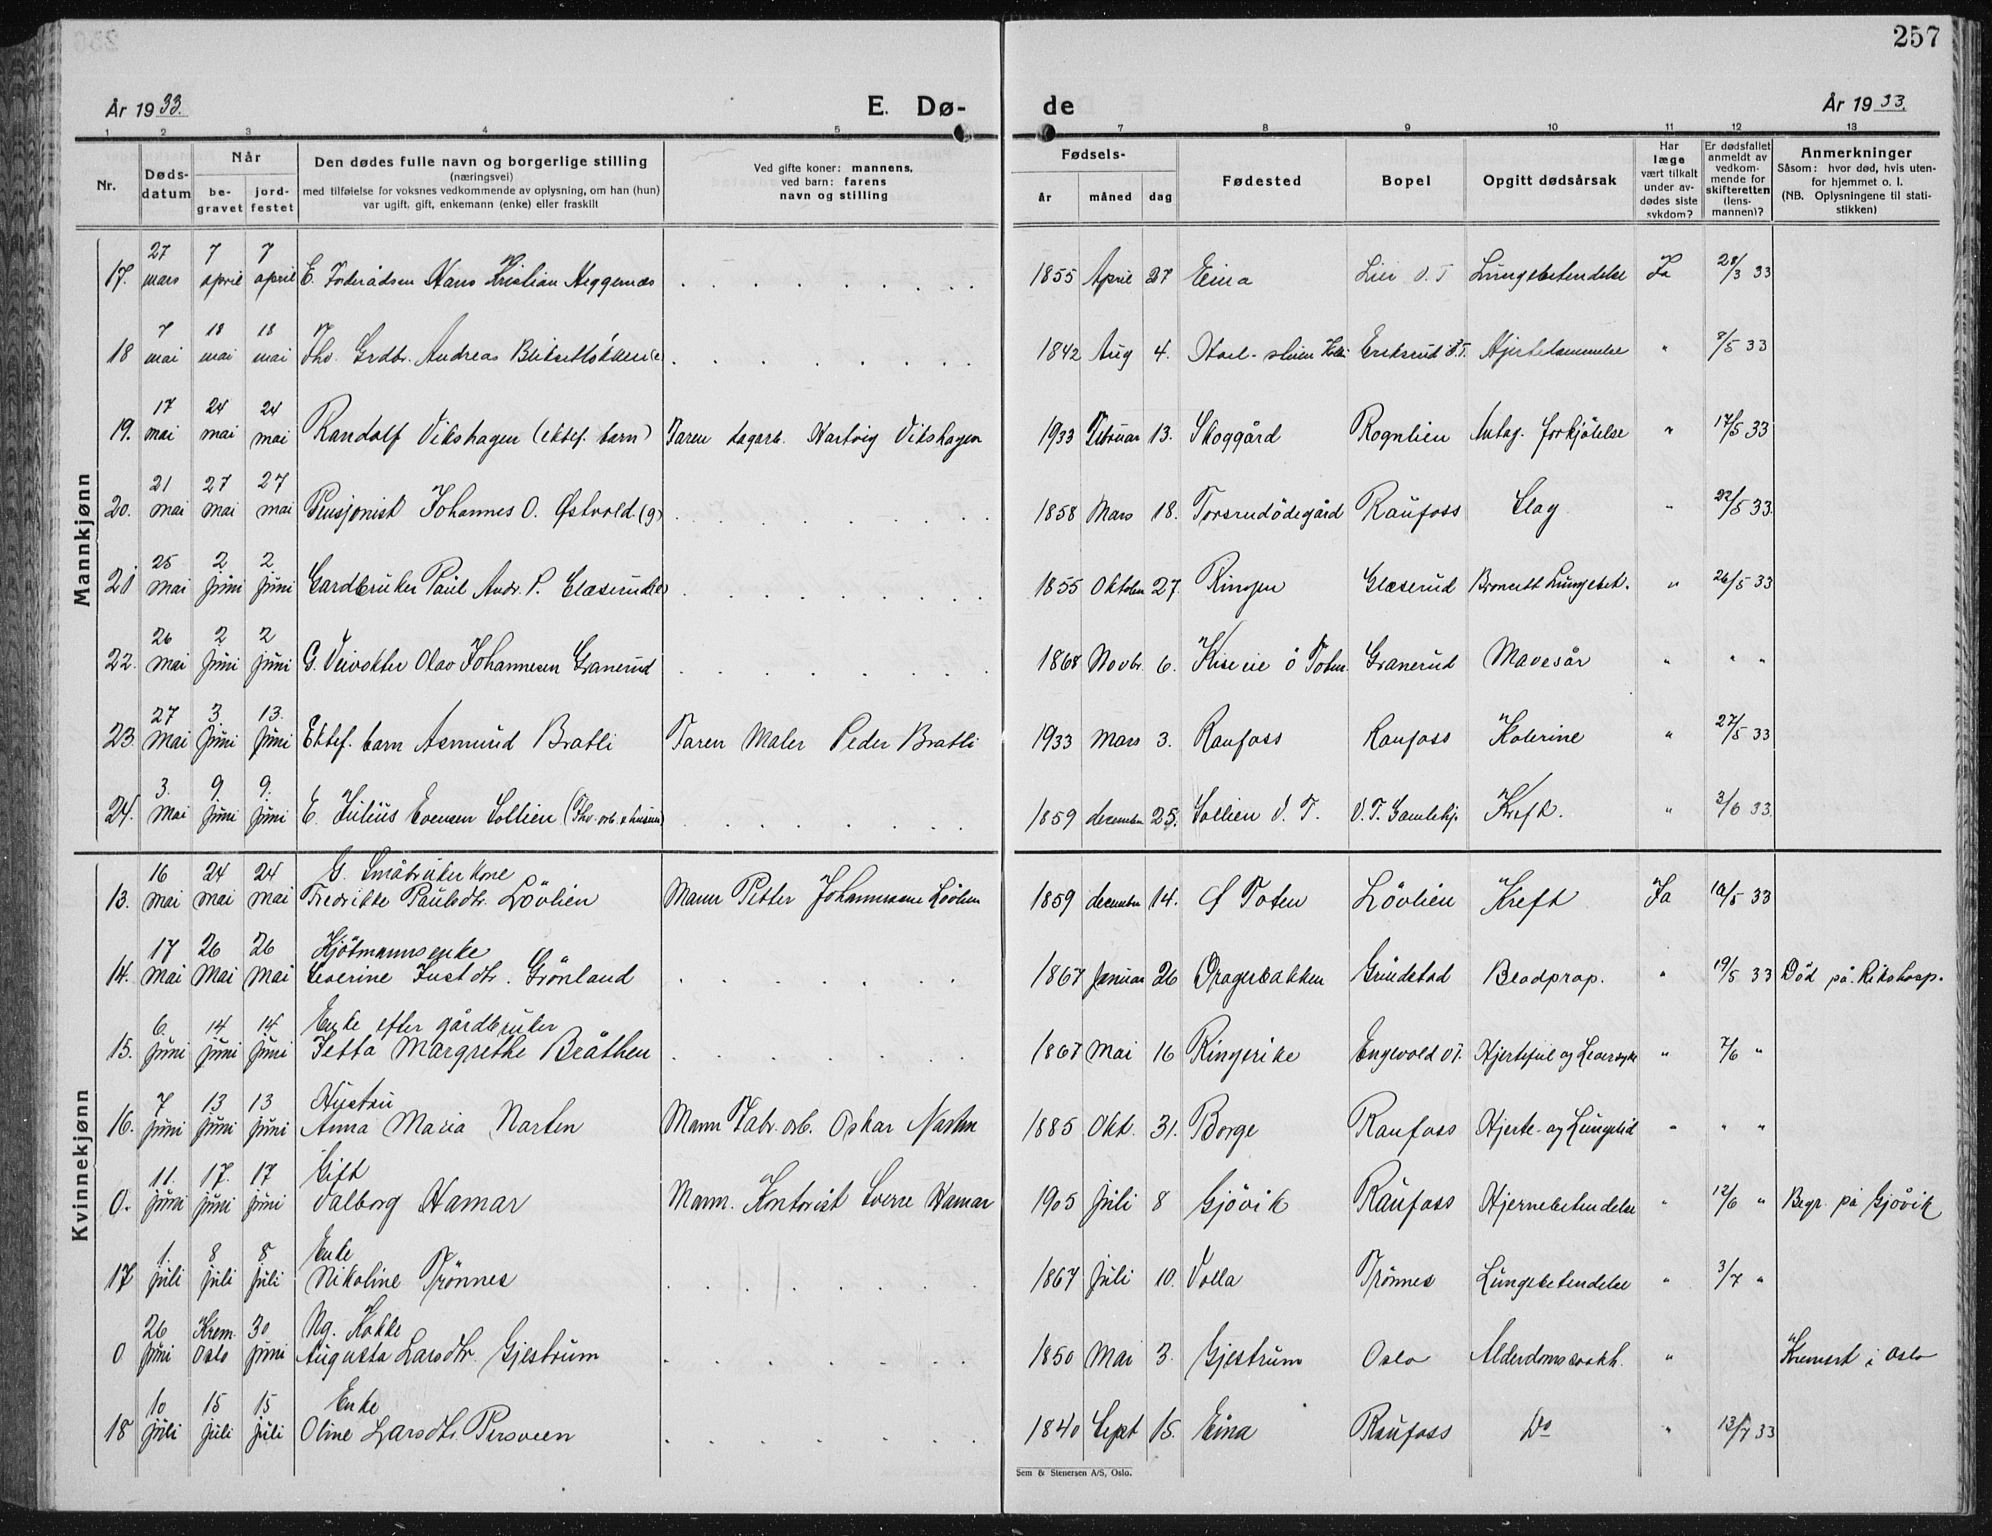 257
År 1933. E. Dø- de År 1933.
1 2 3 4 5 7 8 9 10 11 12 13
Nr.
Døds-
datum
Når
be-
gravet
jord-
festet
Den dødes fulle navn og borgerlige stilling
(næringsvei)
med tilføielse for voksnes vedkommende av oplysning, om han (hun)
var ugift, gift, enkemann (enke) eller fraskilt
Ved gifte koner: mannens,
ved barn: farens
navn og stilling
Fødsels-
år måned dag
Fødested
Bopel
Opgitt dødsårsak
Har
læge
vært tilkalt
under av-
dødes siste
sykdom?
Er dødsfallet
anmeldt av
vedkom-
mende for
skifteretten
(lens-
mannen)?
Anmerkninger
Såsom: hvor død, hvis uten-
for hjemmet o. l.
(NB. Oplysningene til stati-
stikken)
Mannkjønn
27 7 7
17. mars april april E. Föderådsm Hans Kristian Heggernæs 1855 April 27 Eina Lier V. T Lungebetendelse Ja 28/3 33
7 18 18
18 mai mai mai Fhv. Grdbr. Andreas (e) 1842 Aug 4. Eriksrud V.T. Hjertelammelse " 8/5 33
17 24 24
19. mai mai mai Randolf Vikshagen (ektef. barn) Faren dagarb. Hartvig Vikshagen 1933 Februar 13. Skoggård Rognlien Antag. forkjölelse " 17/5 33
21 27 27
20. mai mai mai Pensjonist Johannes O. Østvold (g) 1858 Mars 18. Torsrudödegård Raufoss Slag " 22/5 33.
25 2 2
21 mai juni juni Gardbruker Paul Andr. P. Glæserud (e) 1855 Oktober 27. Ringen Glæserud Broncitt Lungebet. " 26/5 33
26 2 2
22. mai juni juni G. Veivokter Olav Johannesen Granerud 1868 Novbr. 6. Kise eie ö Toten Granerud Mavesår " " "
27 3. 13.
23 mai juni juni Ektef. barn Asmund Bratli Faren Maler Peder Bratli 1933 mars 3. Raufoss Raufoss Kolerine " 27/5 33
3. 9 9.
24. mai juni juni E. Julius Evensen Sollien (Fhv. arb. ) 1859 december 25. Sollien V. T. V. T. Gamlehj. Kreft. " 3/6 33.
Kvinnekjønn
16 24 24 G. Småbruker kone
13. mai mai mai Fredrikke Paulsdtr. Lövlien Mann Petter Johannessen Lövlien 1859 december 14. Ø Toten Lövlien Kreft Ja 19/5 33
17 26 26 Kjötmannsenke
14. mai mai mai Severine Justdtr. Grönland 1867 Januar 26 Dragerbakken Grindstad Blodprop. " 19/5 33 Död på Rikshosp.
6. 14 14 Enke efter gårdbruker
15. juni juni juni Jetta Margrethe Bråthen 1867 Mai 16 Ringerike Engevold V T. Hjertefeil og Leversyke " 7/6 "
7 13 13 Hustru
16. juni juni juni Anna Maria Narten Mann Fabr. arb. Oskar Narten 1885 Okt. 31. Borge Raufoss Hjerte- og Lungelid " " "
11. 17. 17 Gift
0. juni juni juni Valborg Hamar Mann. Kontorist Sverre Hamar 1905 juli 8 Gjövik Raufoss Hjernebetendelse " 12/6 " Begr. på Gjövik
1. 8 8 Enke
17 juli juli juli Nikoline Trönnes 1867 Juli 10. Volla Trönnes Lungebetendelse " 3/7 "
26 Krem. 30 Ug. Kokke
0 juni Oslo juni Augusta Larsdtr. Gjestrum 1850 Mai 3. Gjestrum Oslo Alderdomssvakh. " Kremert i Oslo
10 15 15 Enke
18 juli juli juli Oline Larsdtr. Persveen 1840 Sept 15. Eina Raufoss Do " 13/7 33
Sem & Stenersen A/S, Oslo.